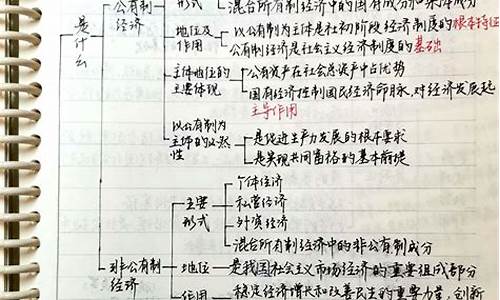 公有制经济
形式
混合所有制经济中的国有成分和集体成分
是什么
地位及作用
公有制为主体是社初阶段经济制度的根本特征
公有制经济是社会主义经济制度的基础
主体地位的主要体现
公有资产在社会总资产中占优势
国有经济控制国民经济命脉,对经济发展起
主导作用
以公有制为主体的必然性
是促进生产力发展的根本要求
是实现共同富裕的基本前提
主要形式
个体经济
私营经济
外资经济
混合所有制经济中的非公有制成分
非公有制经济
地位
是我国社会主义市场经济的重要组成部分
作用
稳定经济增长和改善民生的重要力量,创新